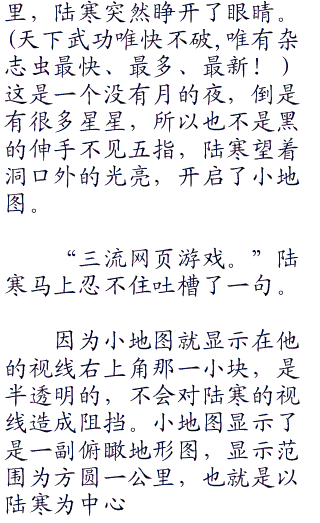 里，陆寒突然睁开了眼睛。
(天下武功唯快不破,唯有杂
志虫最快、最多、最新！)
这是一个没有月的夜，倒是
有很多星星，所以也不是黑
的伸手不见五指，陆寒望着
洞口外的光亮，开启了小地
图。
“三流网页游戏。”陆
寒马上忍不住吐槽了一句。
因为小地图就显示在他
的视线右上角那一小块，是
半透明的，不会对陆寒的视
线造成阻挡。小地图显示了
是一副俯瞰地形图，显示范
围为方圆一公里，也就是以
陆寒为中心